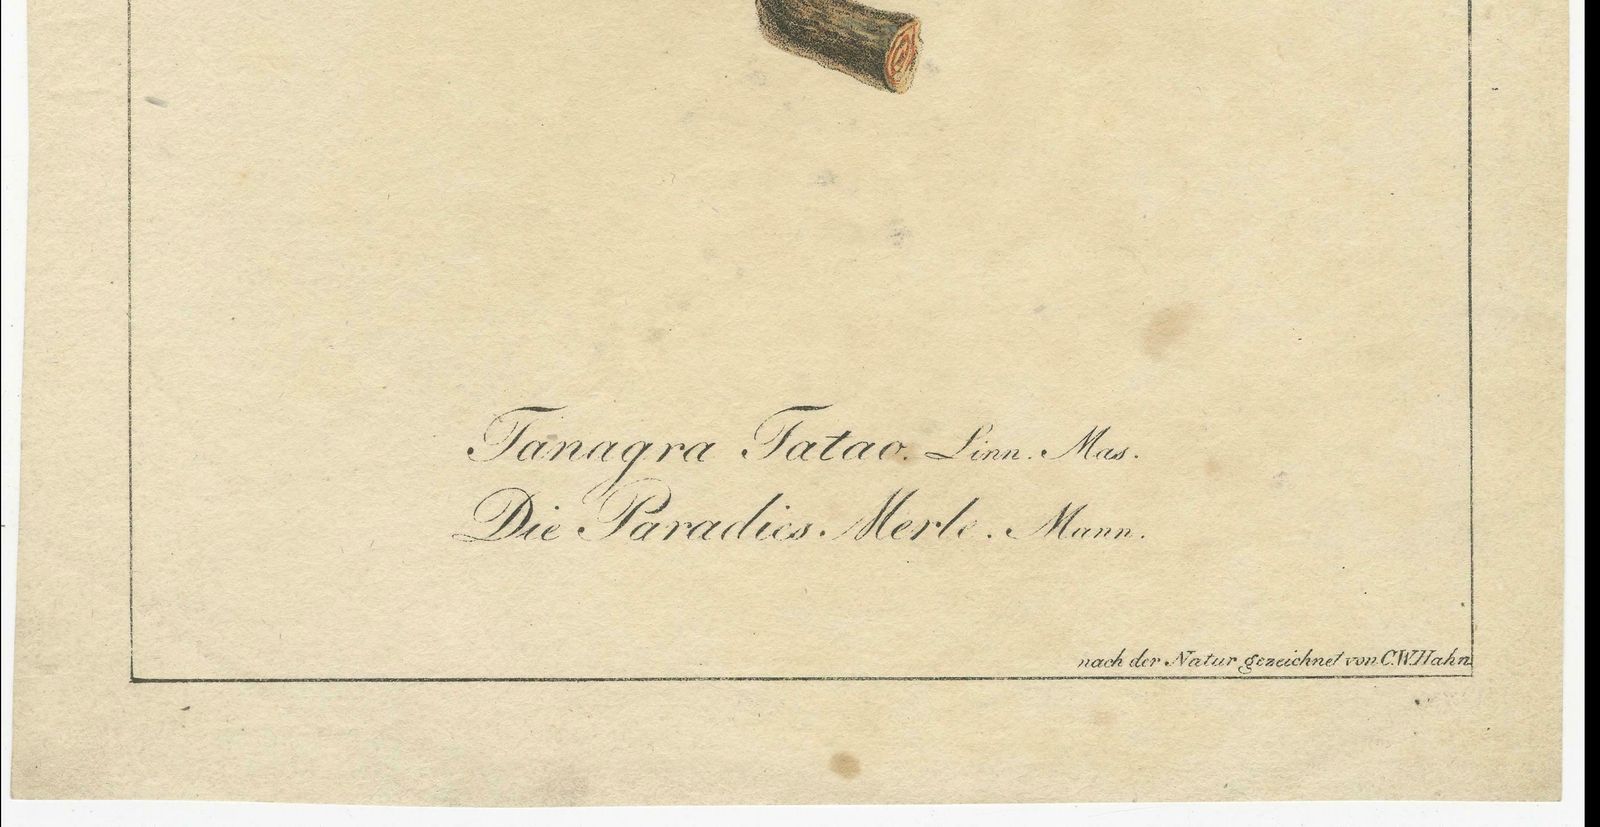 Tanagra Tatao. Linn. Mas.
Die Paradies. Merle. Mann.
nach der Natur gezeichnet von C.W.Hahn